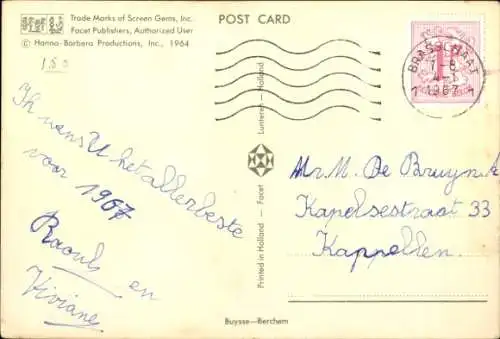 Trade Marks of Screen Gems, Inc.
Facet Publishers, Authorized User
© Hanna-Barbera Productions, Inc., 1964
POST CARD
1.50
BRASSCHAAT
4-1
1967
1 1
Ik wens U het allerbeste
voor 1967
Raouls en
Viviane
Printed in Holland — Facet
Lunteren - Holland
Mr. M. De Bruynck
Kapelsestraat 33
Kappellen.
Buysse—Berchem